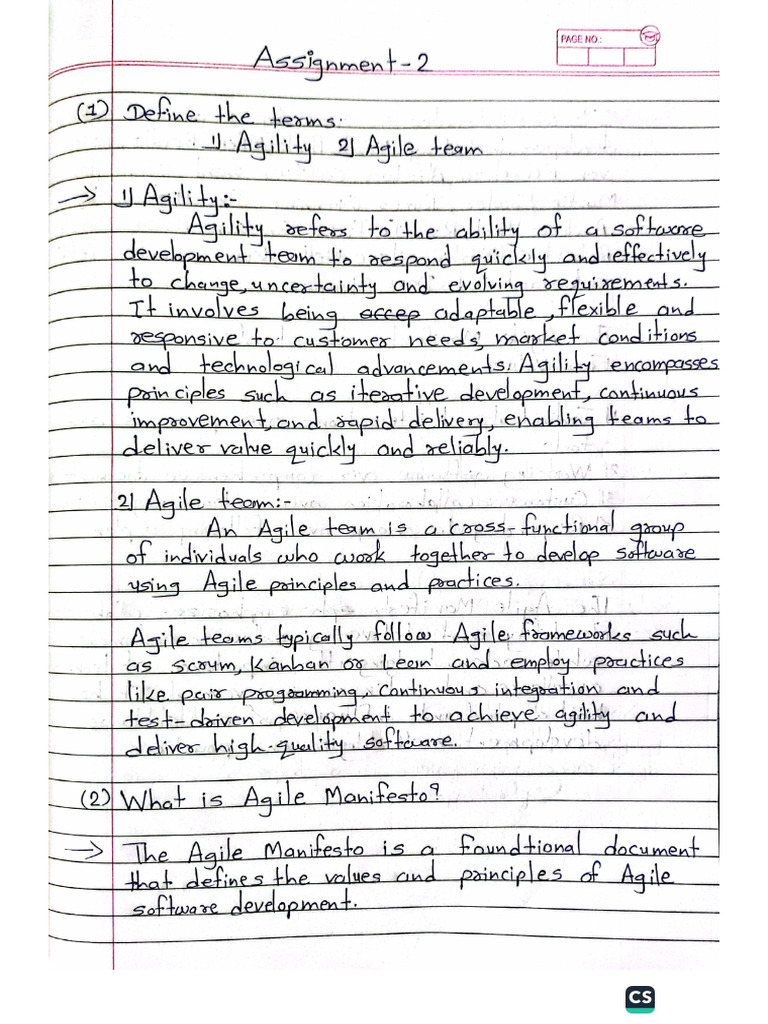 PAGE NO.:
Assignment-2
(1) Define the terms.
1) Agility 2) Agile team
→ 1) Agility:-
Agility refers to the ability of a software
development team to respond quickly and effectively
to change, uncertainty and evolving requirements.
It involves being accep adaptable, flexible and
responsive to customer needs, market conditions
and technological advancements. Agility encompasses
principles such as iterative development, continuous
improvement, and rapid delivery, enabling teams to
deliver value quickly and reliably.
2) Agile team:-
An Agile team is a cross-functional group
of individuals who work together to develop software
using Agile principles and practices.
Agile teams typically follow Agile frameworks such
as Scrum, Kanban or Lean and employ practices
like pair programming, continuous integration and
test-driven development to achieve agility and
deliver high-quality software.
(2) What is Agile Manifesto?
→ The Agile Manifesto is a foundtional document
that defines the values and principles of Agile
software development.
CS